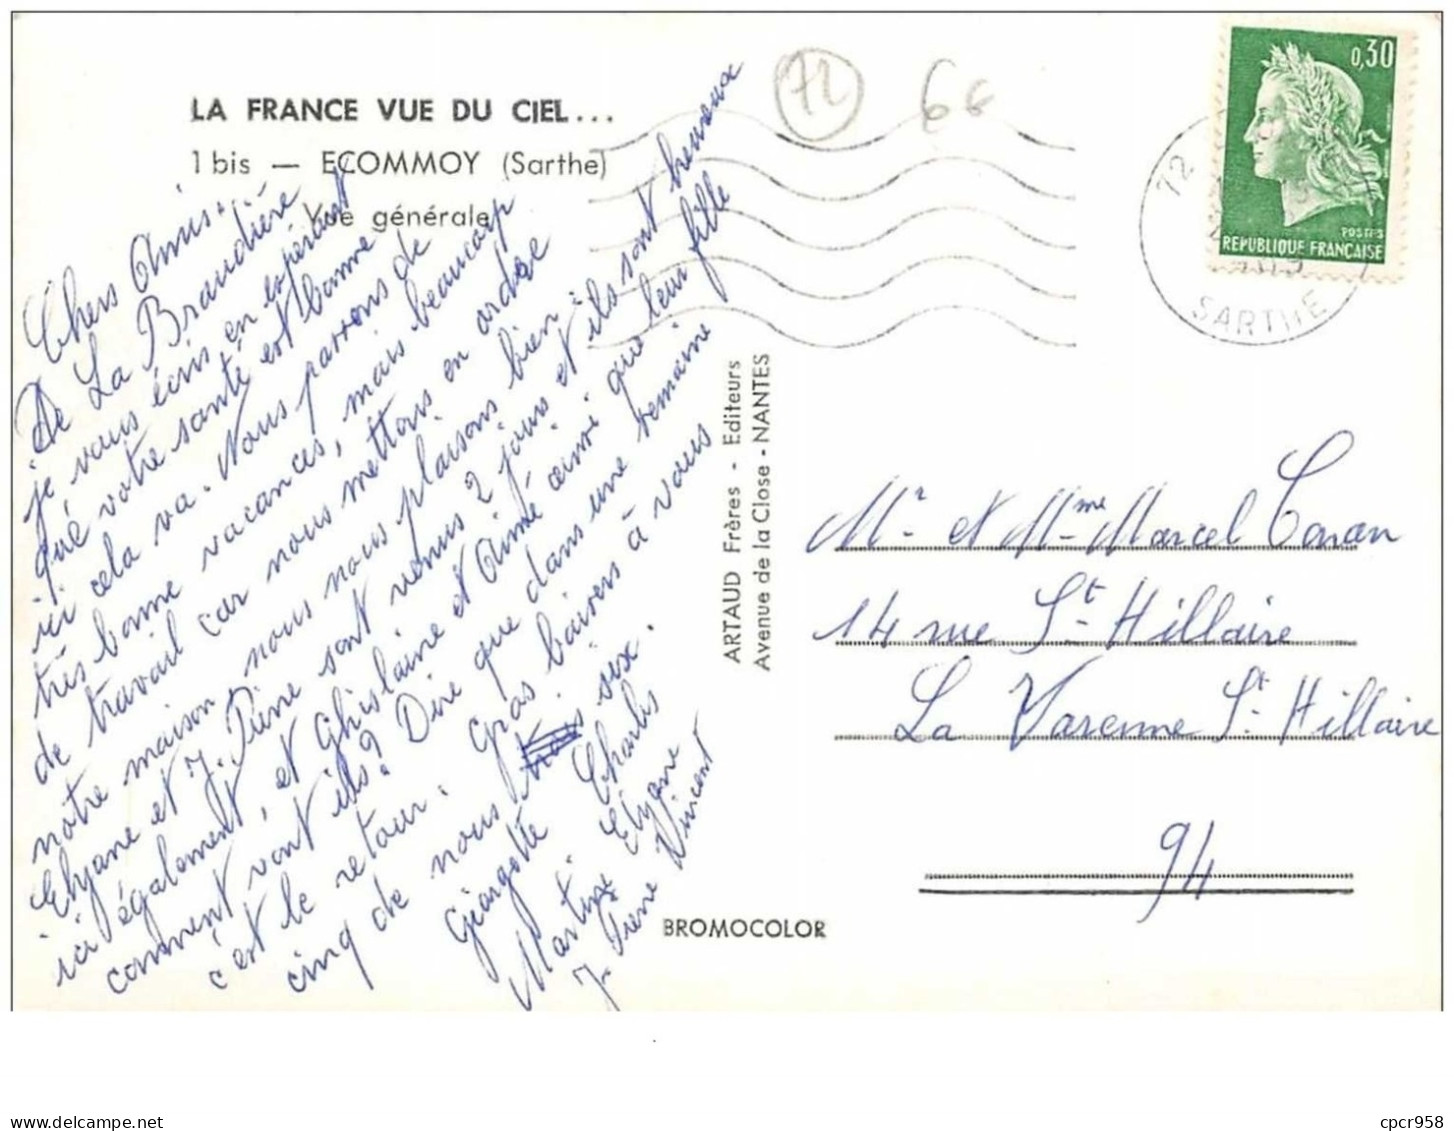 LA FRANCE VUE DU CIEL...
1 bis — ECOMMOY (Sarthe)
Vue générale
72
66
0,30
POSTES
REPUBLIQUE FRANÇAISE
72
SARTHE
Chers Amis.
De La Braudière
je vous écris en espérant
que votre santé est bonne
ici cela va. Nous passons de
très bonne vacances, mais beaucoup
de travail car nous mettons en ordre
notre maison nous nous plaisons bien.
Elyane et J. Pierre sont venus 2 jours et ils sont heureux
ici également, et Ghislaine et Aimé ainsi que leur fille
comment vont ils? Dire que dans une semaine
c'est le retour. Gros baisers à vous
cinq de nous six.
Georgette Charles
Martine Elyane
J. Pierre Vincent
ARTAUD Frères - Editeurs
Avenue de la Close - NANTES
Mr et Mme Marcel Conan
14 rue St Hillaire
La Varenne St Hillaire
94
BROMOCOLOR
delcampe.net
cpcr958